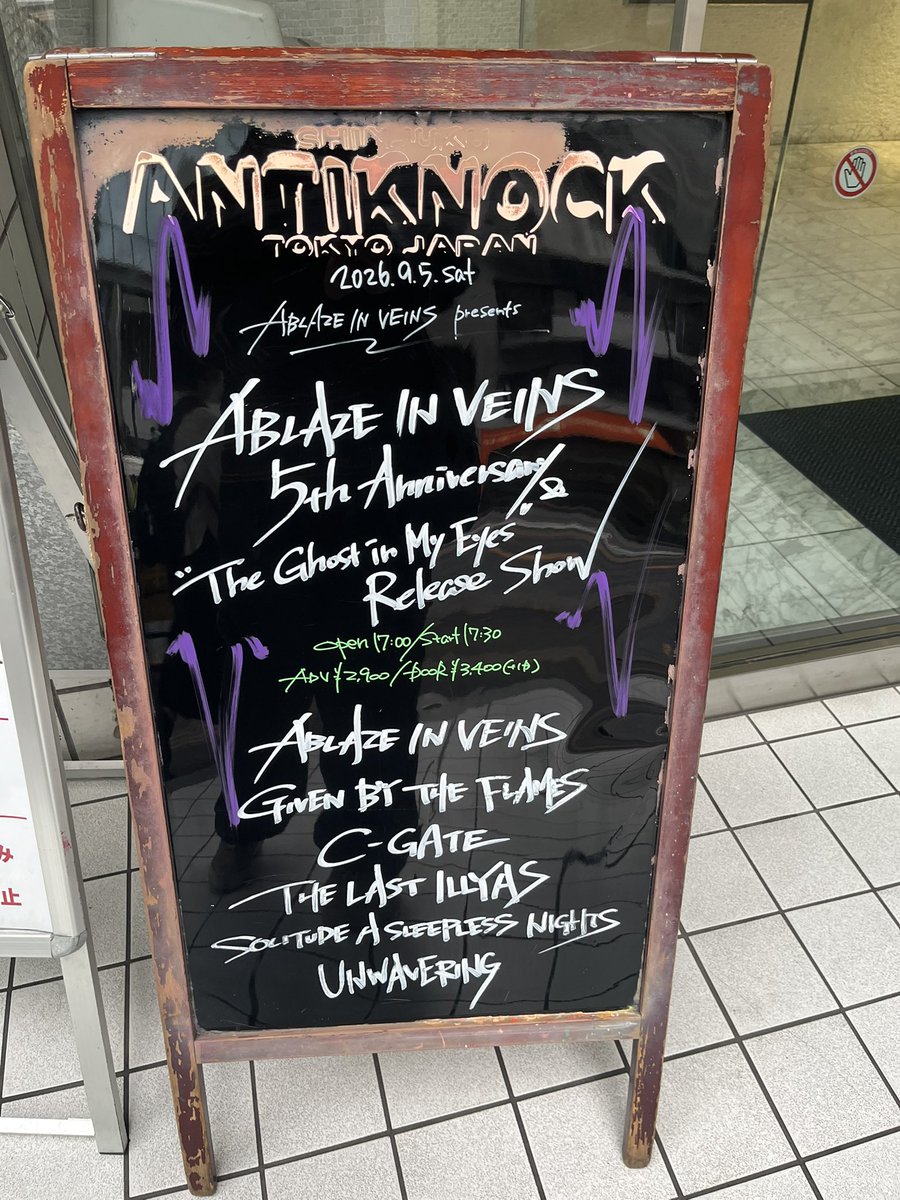 SHINJUKU
ANTIKNOCK
TOKYO JAPAN
2026.9.5.sat
ABLAZE IN VEINS presents
ABLAZE IN VEINS
5th Anniversary &
"The Ghost in My Eyes"
Release Show
open 17:00/Start 17:30
ADV ¥2,900/DOOR ¥3,400(+1D)
ABLAZE IN VEINS
GIVEN BY THE FLAMES
C-GATE
THE LAST ILLYAS
SOLITUDE A SLEEPLESS NIGHTS
UNWAVERING
み
止